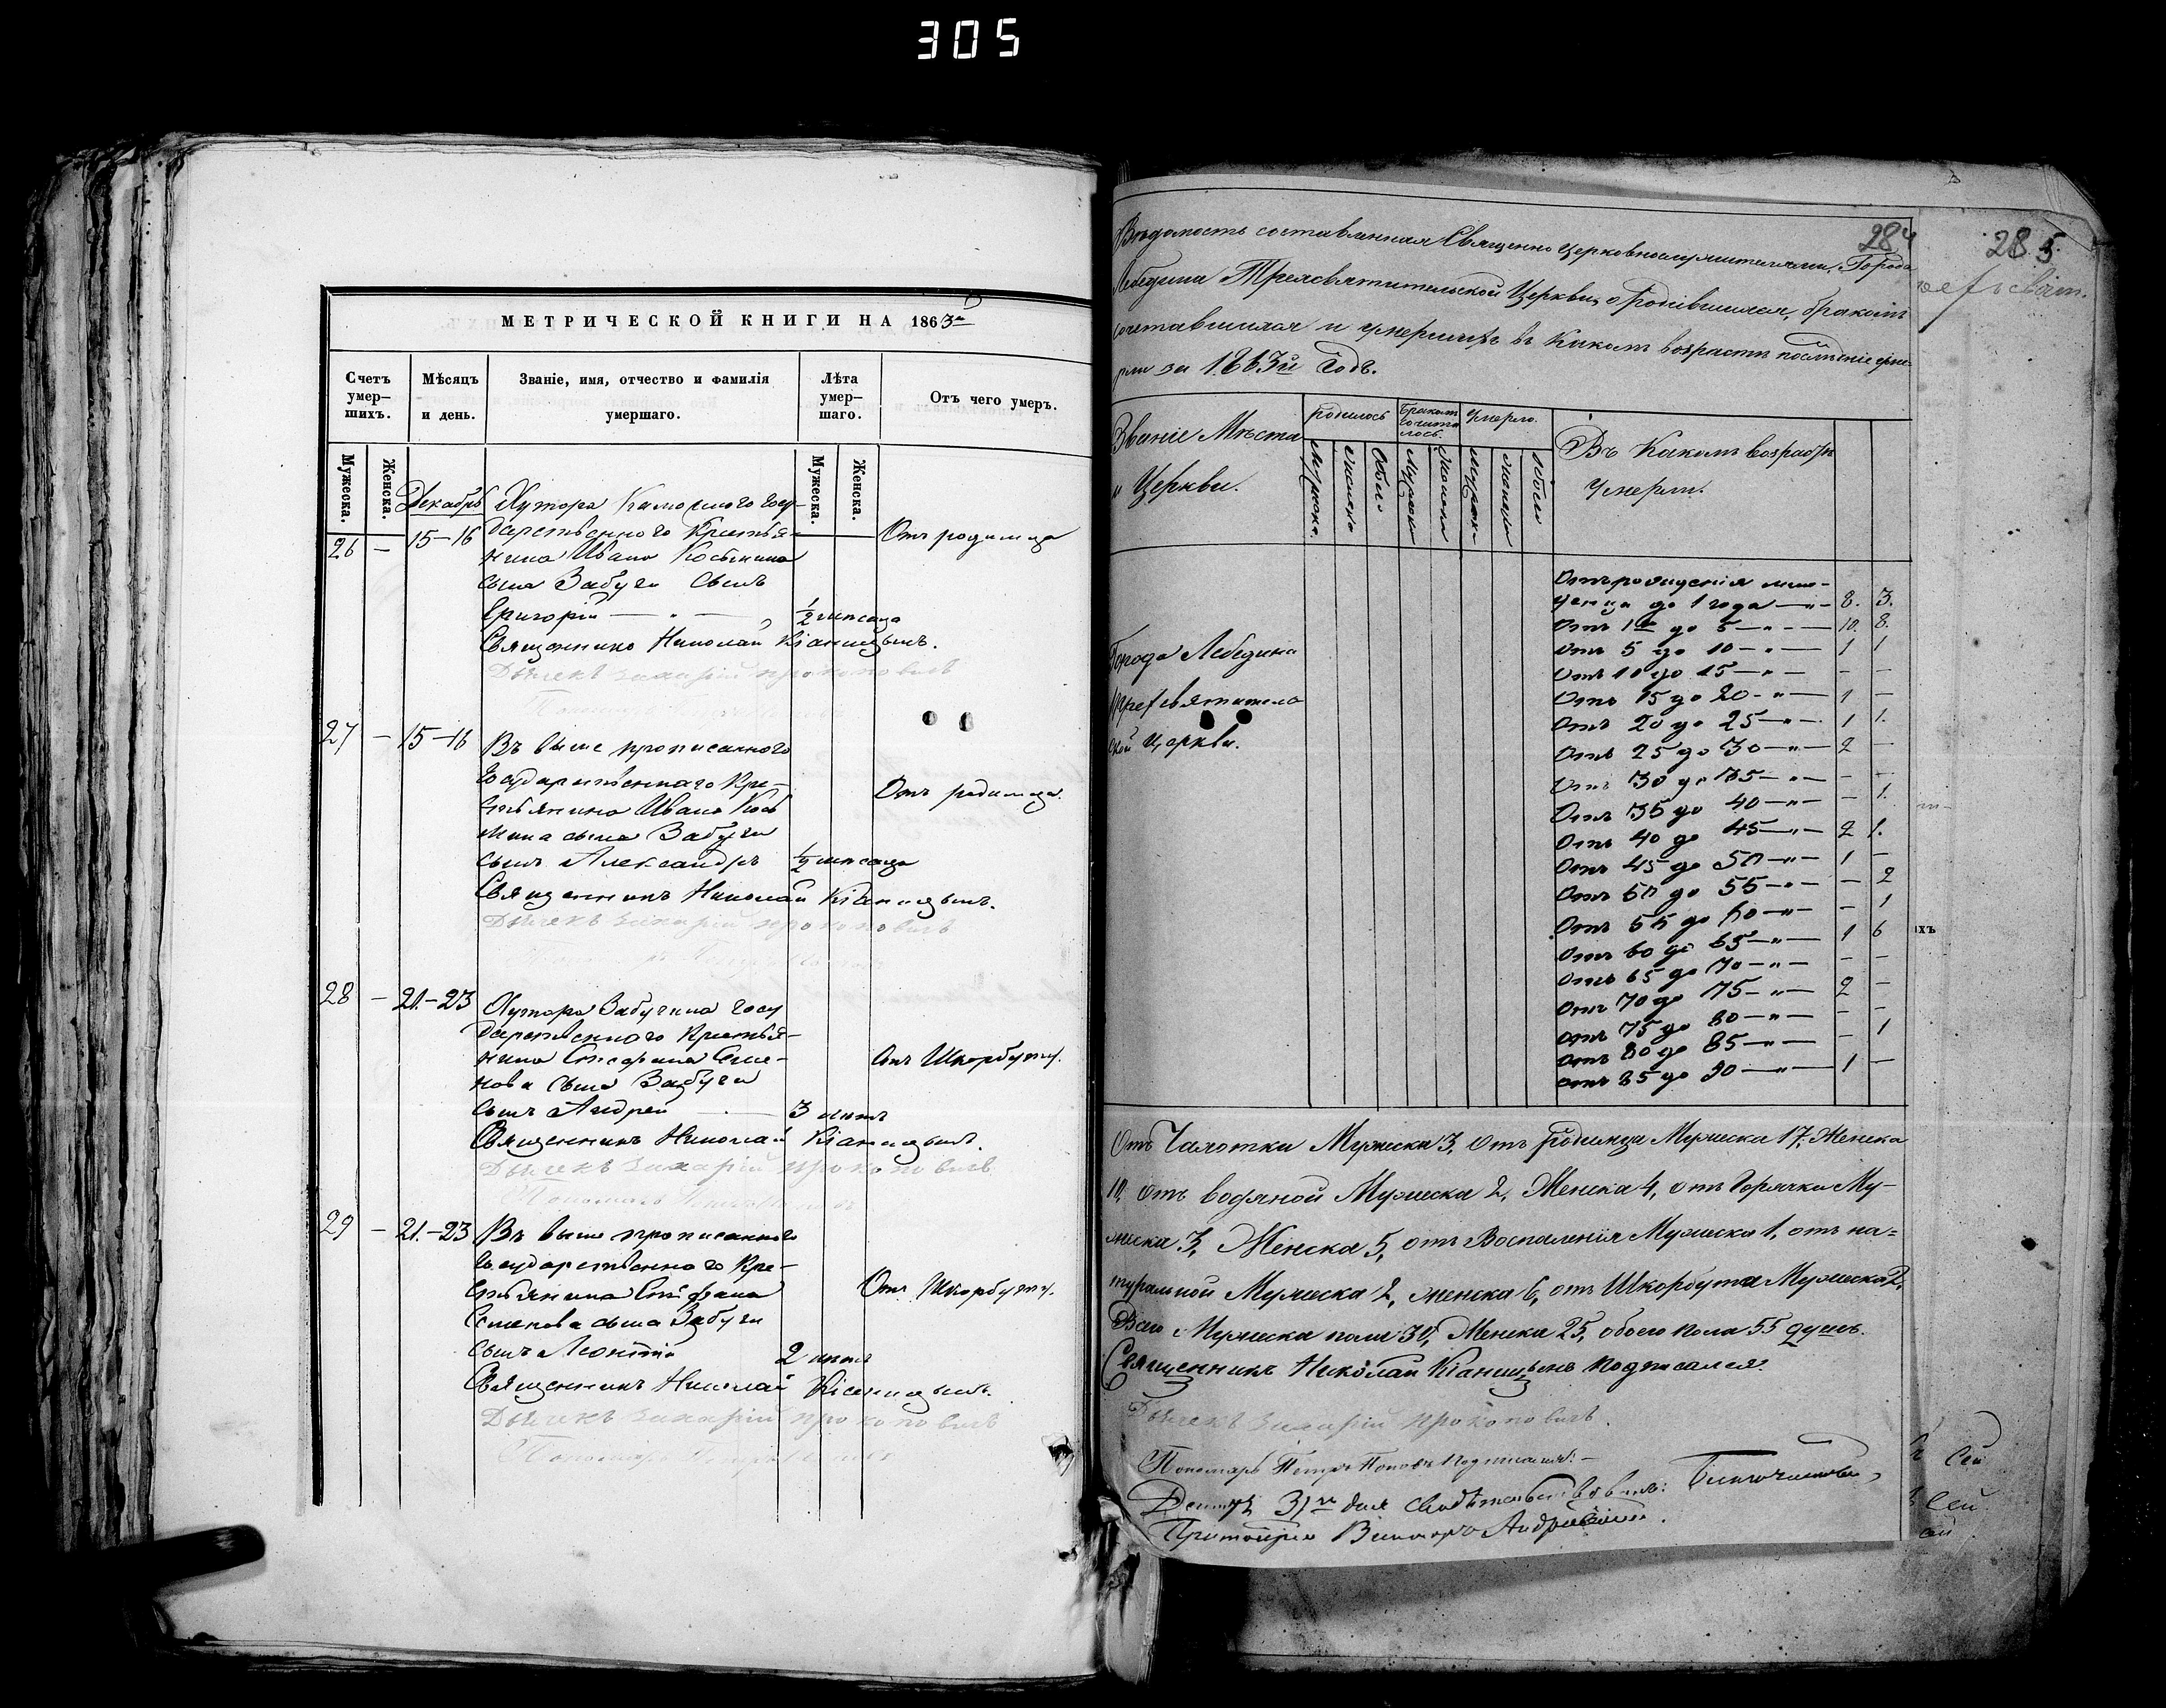 305
МЕТРИЧЕСКОЙ КНИГИ НА 1863й
Счетъ умер–шихъ.
Мѣсяцъ и день.
Званіе, имя, отчество и фамилія умершаго.
Лѣта умер–шаго.
Отъ чего умеръ.
Мужеска.
Женска.
Мужеска.
Женска.
Декабрь
Хутора Каморного Госу–
26 — 15–16
дарственного Крестья–
Отъ родимца
нина Ивана Косьмина
сына Забуги сынъ
Григорій — " — 1/2 мѣсяца
Священникъ Николай Кіаницынъ.
Дьячекъ Захарій Прокоповичъ
27 — 15–16
Въ выше прописанного
Государственнаго Кре–
Отъ родимца.
стьянина Ивана Кось
мина сына Забуги
сынъ Александръ 1/2 мѣсяца
Священникъ Николай Кіаницынъ.
Дьячекъ Захарій Прокоповичъ
28 — 21–23
Хутора Забугина Госу
дарственного Крестья–
нина Стефана Семе–
Отъ Шкорбуту.
нова сына Забуги
сынъ Андрей — 3 лѣтъ
Священникъ Николай Кіаницынъ.
Дьячекъ Захарій Прокоповичъ
29 — 21–23
Въ выше прописанного
Государственного Кре–
стьянина Стефана
Отъ Шкорбуту.
Семенова сына Забуги
сынъ Леонтій 2 лѣтъ
Священникъ Николай Кіаницынъ.
Дьячекъ Захарій Прокоповичъ
284
285
Вѣдомость составленная Священно церковнослужителями, Города
Лебедина Трехсвятительской Церкви, о Родившихся, бракомъ
сочетавшихся и умершихъ въ какомъ возрастѣ послѣдніе уме–
рли за 1863й Годъ.
Званіе Мѣста
и Церкви.
родилось
Бракомъ сочета лось.
Умерло.
Въ Какомъ возрастѣ
Умерли.
Мужска.
женска
Обоего
Мужска
женска
Мужск.
женска
обоего
Города Лебедина
Трехсвятитель
ской Церкви.
Отъ рожденія мла–
денца до 1 года — 8. 3.
Отъ 1го до 5 — " — 10. 8.
Отъ 5 до 10 — " — 1 1
Отъ 10 до 15 — " — – –
Отъ 15 до 20 — " — 1 –
Отъ 20 до 25 — " — 1 1.
Отъ 25 до 30 — " — 2 –
Отъ 30 до 35 — " — – –
Отъ 35 до 40 — " — – 1.
Отъ 40 до 45 — " — 2 1.
Отъ 45 до 50 — " — 1 –
Отъ 50 до 55 — " — – 2
Отъ 55 до 60 — " — – 1
Отъ 60 до 65 — " — 1 6
Отъ 65 до 70 — " — – –
Отъ 70 до 75 — " — 2 –
Отъ 75 до 80 — " — – –
Отъ 80 до 85 — " — – 1
Отъ 85 до 90 — " — 1 –
Отъ Чахотки Мужеска 3, Отъ Родимца Мужеска 17, Женска
10, Отъ водяной Мужеска 2, Женска 4, отъ Горячки Му–
жеска 3, Женска 5, отъ Воспаленія Мужеска 1, отъ на=
туральной Мужеска 2, женска 6, отъ Шкорбута Мужеска 2,
Всего Мужеска пола 30, Женска 25, обоего пола 55 душъ.
Священникъ Николай Кіаницынъ подписался.
Дьячекъ Захарій Прокоповичъ.
Пономарь Петръ Поповъ подписался: –
31го дня свидѣтельствовалъ: Благочинный,
Протоіерей Викторъ